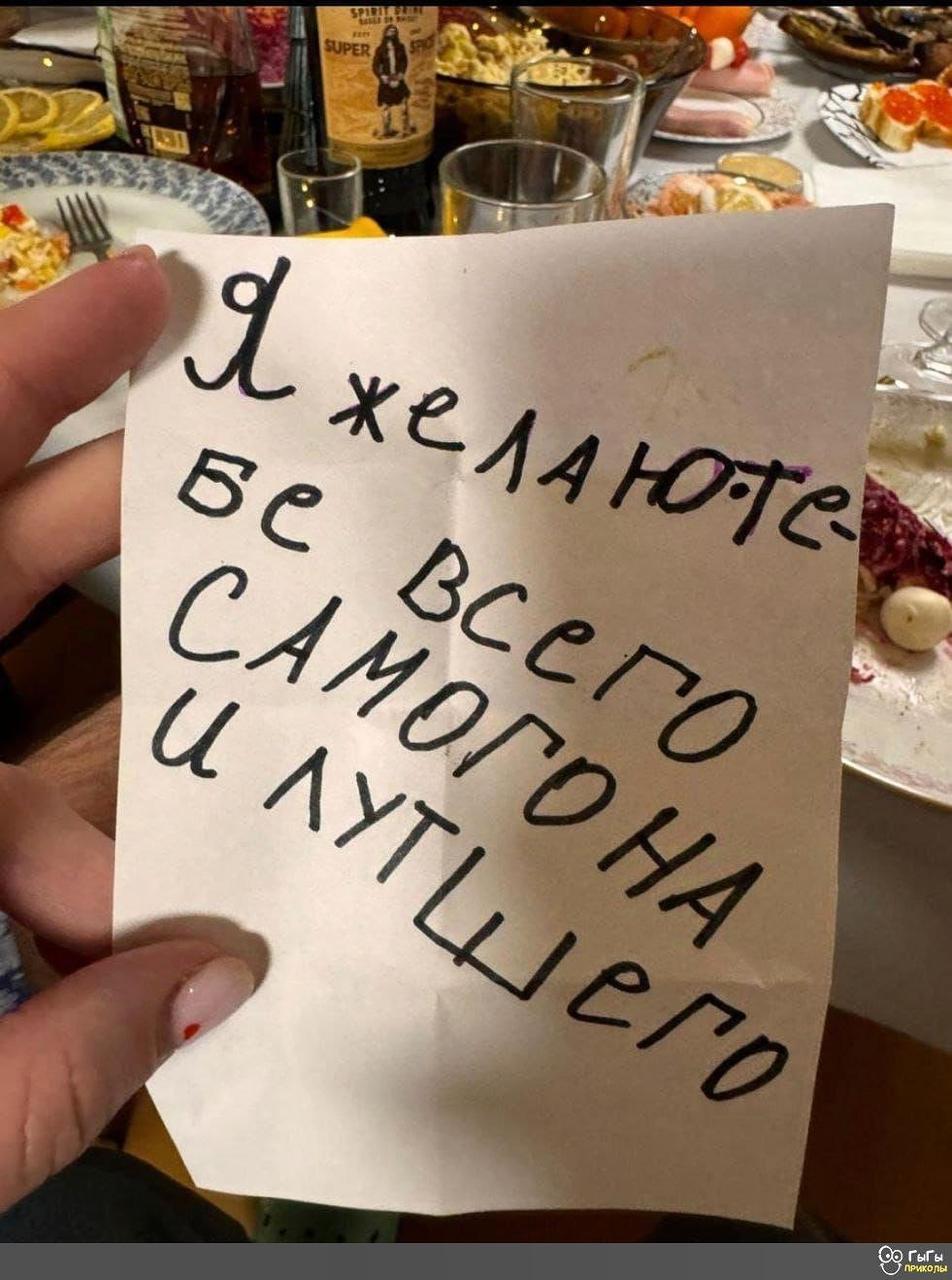 SPIRIT DRINK
BASED ON WHISKY
SUPER SPICED
Я желАЮ·Те-
бе всего
САМОГОНА
И ЛУТШего
ГыГы
приколы